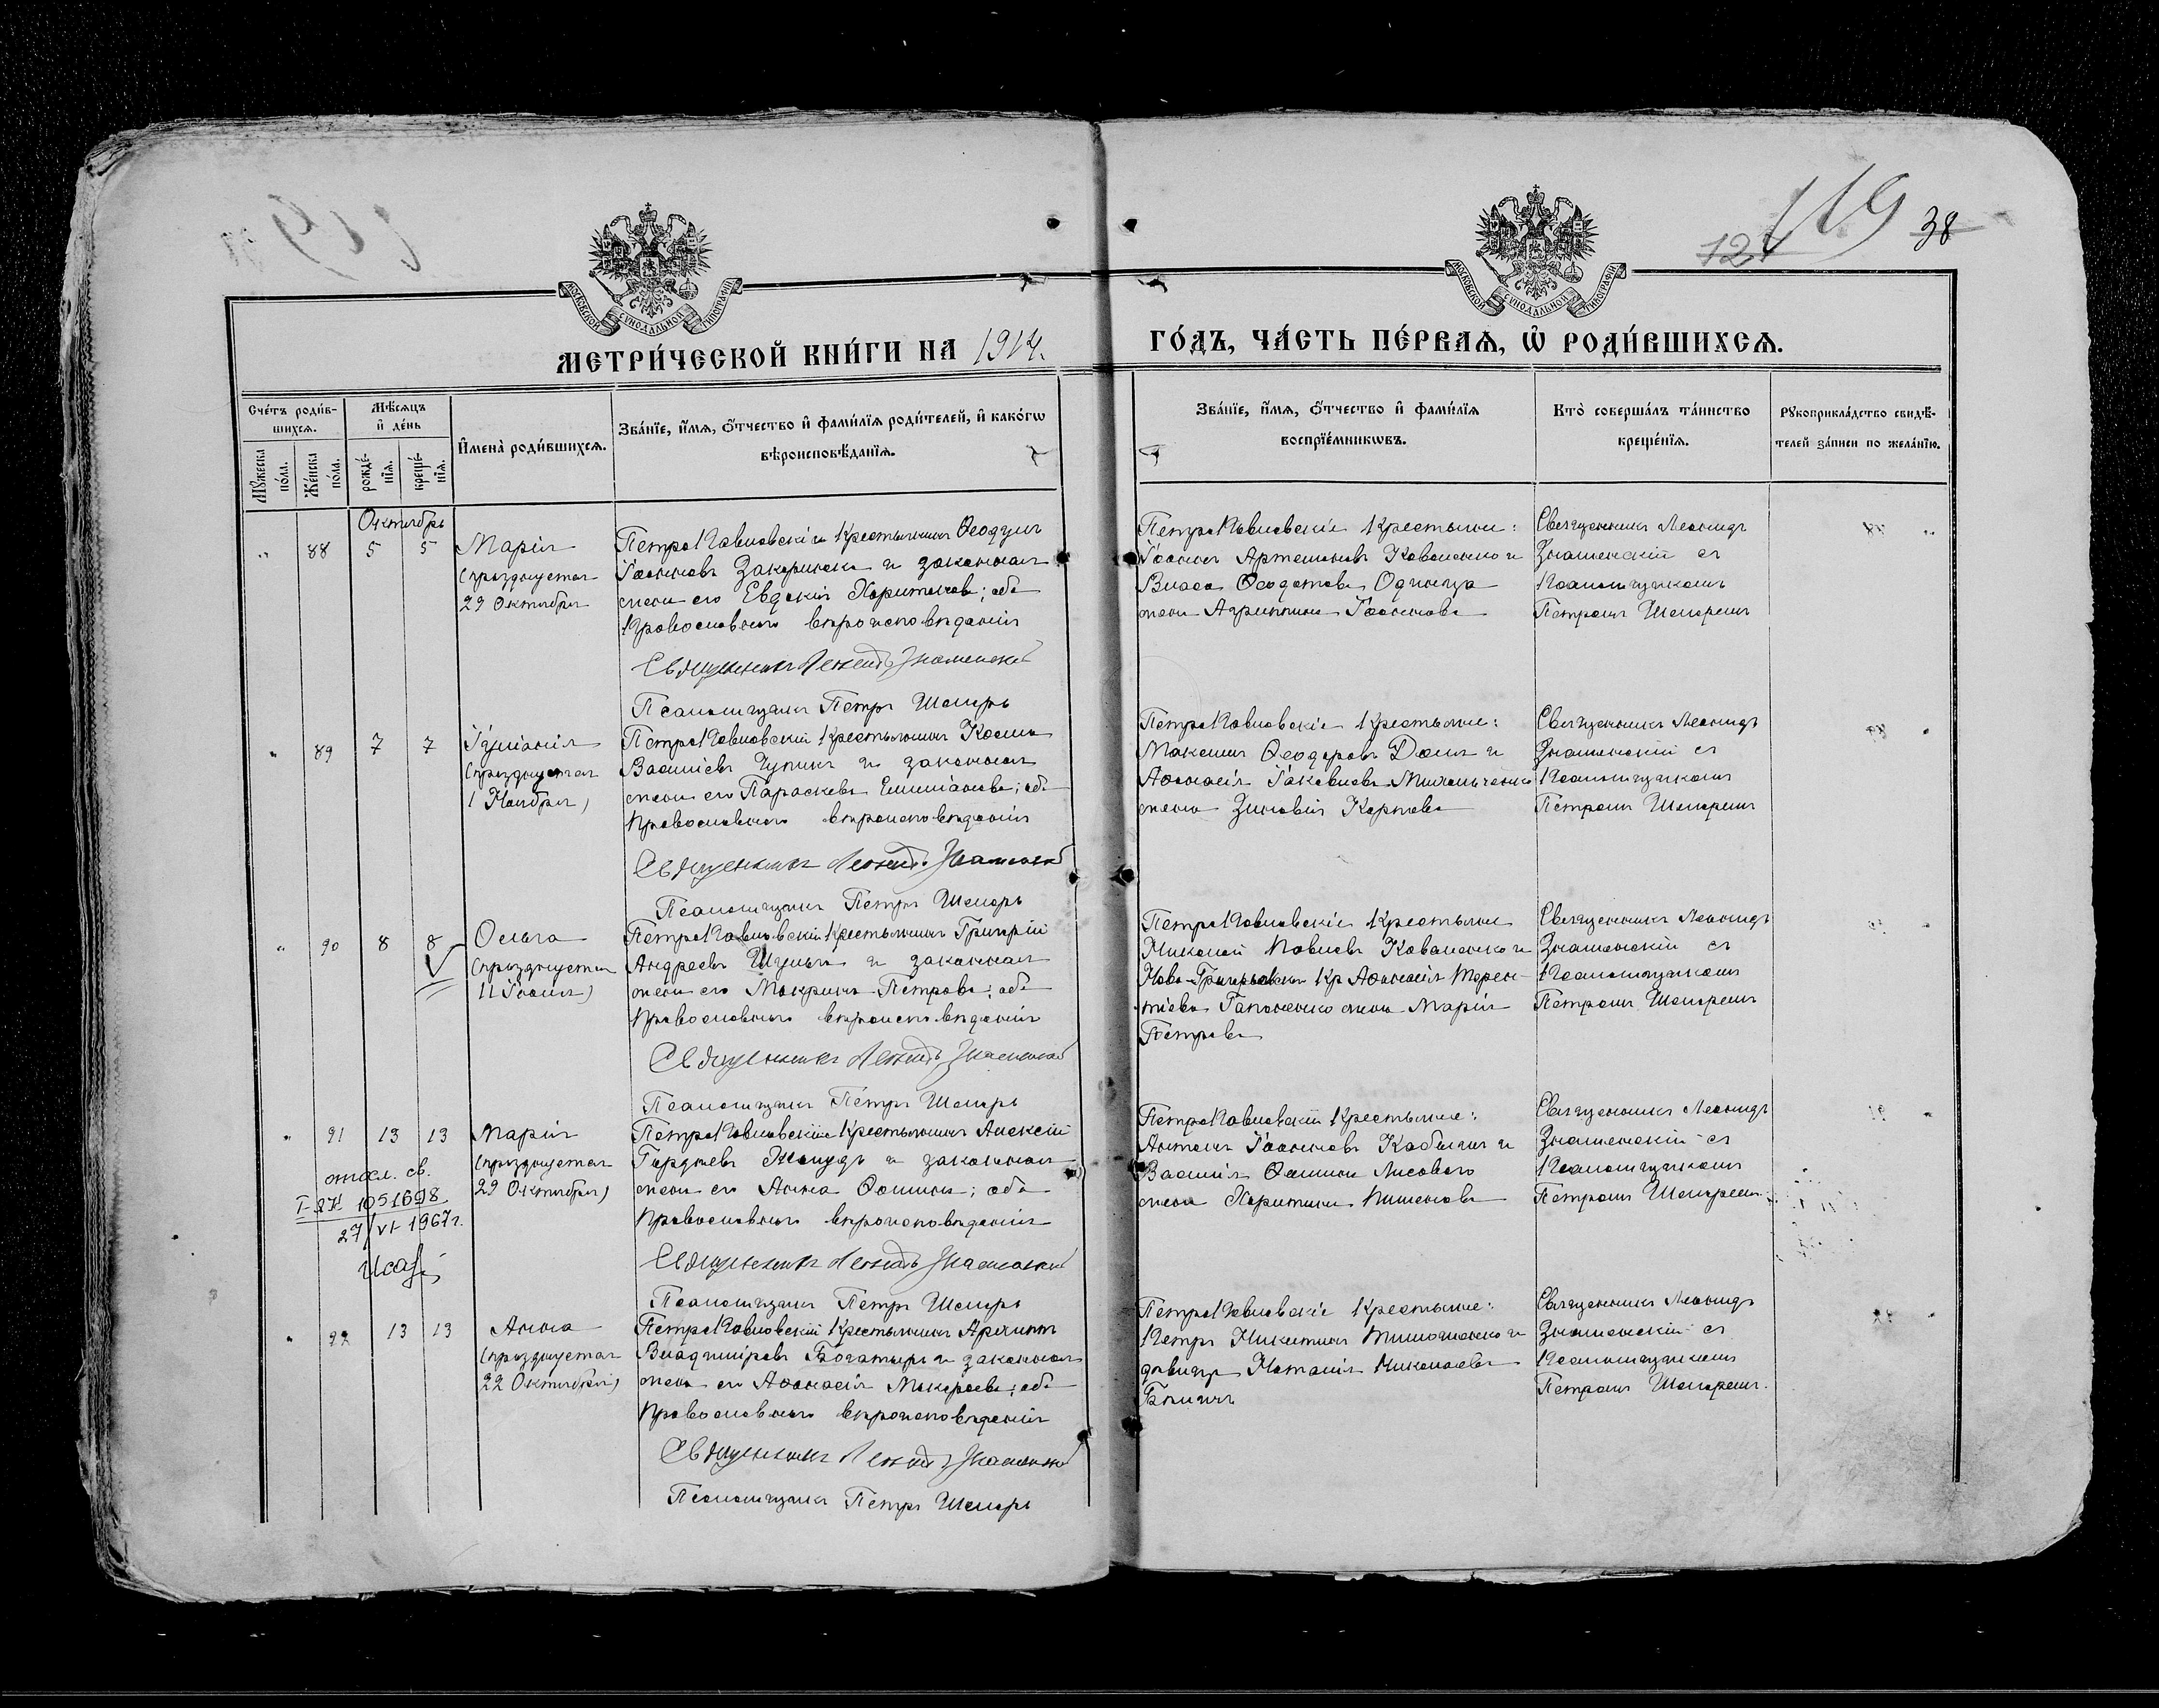 119
12
38
МОСКОВСКОЙ СѴНОДАЛЬНОЙ ТИПОГРАФІИ
МОСКОВСКОЙ СѴНОДАЛЬНОЙ ТИПОГРАФІИ
МЕТРИ́ЧЕСКОЙ КНИ́ГИ НА 1914.
ГО́ДЪ, ЧА́СТЬ ПЕ́РВАѦ, Ѽ РОДИ́ВШИХСѦ.
Сче́тъ роди́в-
шихсѧ.
Мѣ́сѧцъ
и҆ де́нь
Мꙋ́жеска
по́ла.
Же́нска
по́ла.
рожде́-
нїѧ.
креще́-
нїѧ.
И҆мена̀ роди́вшихсѧ.
Зва́нїе, и҆́мѧ, ѻ҆́тчество и҆ фами́лїѧ роди́телей, и҆ како́гѡ
вѣроисповѣ́данїѧ.
Зва́нїе, и҆́мѧ, ѻ҆́тчество и҆ фами́лїѧ
воспрїе́мникѡвъ.
Кто̀ соверша́лъ та́инство
креще́нїѧ.
Рꙋкоприкла́дство свидѣ́-
телей за́писи по жела́нїю.
Октябрь
" 88 5 5
Марія
(празднуется
29 Октября
Петро Павловскій Крестьянинъ Ѳеодулъ
Іоанновъ и законная
жена его Евдокія Харитонова; оба
Православнаго вѣроисповѣданія
Священникъ Леонидъ Знаменскій
Псаломщикъ Петръ
Петро Павловскіе Крестьяне:
Іоаннъ Артемоновъ Коваленко и
Власа Ѳеодотова Одинца
жена Агриппина Іоаннова
Священникъ Леонидъ
Знаменскій съ
Псаломщикомъ
Петромъ
" 89 7 7
(празднуется
1 Ноября)
Петро Павловскій Крестьянинъ Косма
Василіевъ Чупика и законная
жена его Параскева Емиліанова; оба
Православнаго вѣроисповѣданія
Священникъ Леонидъ Знаменскій
Псаломщикъ Петръ
Петро Павловскіе Крестьяне:
Максимъ Ѳеодоровъ и
Аѳанасія Іаковлева
жена Зиновія Карпова
Священникъ Леонидъ
Знаменскій съ
Псаломщикомъ
Петромъ
" 90 8 8
Ольга
(празднуется
11 Іюля)
Петро Павловскій Крестьянинъ Григорій
Андреевъ Шульга и законная
жена его Макрина Петрова; оба
Православнаго вѣроисповѣданія
Священникъ Леонидъ Знаменскій
Псаломщикъ Петръ
Петро Павловскіе Крестьяне
Николай Павловъ Коваленко и
Ново-Григорьевскаго Кр Аѳанасія Терен-
тіева Гапоненко жена Марія
Петрова
Священникъ Леонидъ
Знаменскій съ
Псаломщикомъ
Петромъ
" 91 13 13
Марія
(празднуется
29 Октября)
1051698
27/VI 1967г.
Петро Павловскій Крестьянинъ Алексій
Гордіевъ и законная
жена его Анна Ѳомина; оба
Православнаго вѣроисповѣданія
Священникъ Леонидъ Знаменскій
Псаломщикъ Петръ
Петро Павловскіе Крестьяне:
Антонъ Іоанновъ и
Василія Ѳомина Лисоваго
жена Харитина Пименова
Священникъ Леонидъ
Знаменскій съ
Псаломщикомъ
Петромъ
" 92 13 13
Анна
(празднуется
22 Октября)
Петро Павловскій Крестьянинъ Архиппъ
Владиміровъ Богатырь и законная
жена его Аѳанасія Макарова; оба
Православнаго вѣроисповѣданія
Священникъ Леонидъ Знаменскій
Псаломщикъ Петръ
Петро Павловскіе Крестьяне:
Петръ Никитинъ Тимошенко и
дѣвица Наталія Николаева
Священникъ Леонидъ
Знаменскій съ
Псаломщикомъ
Петромъ